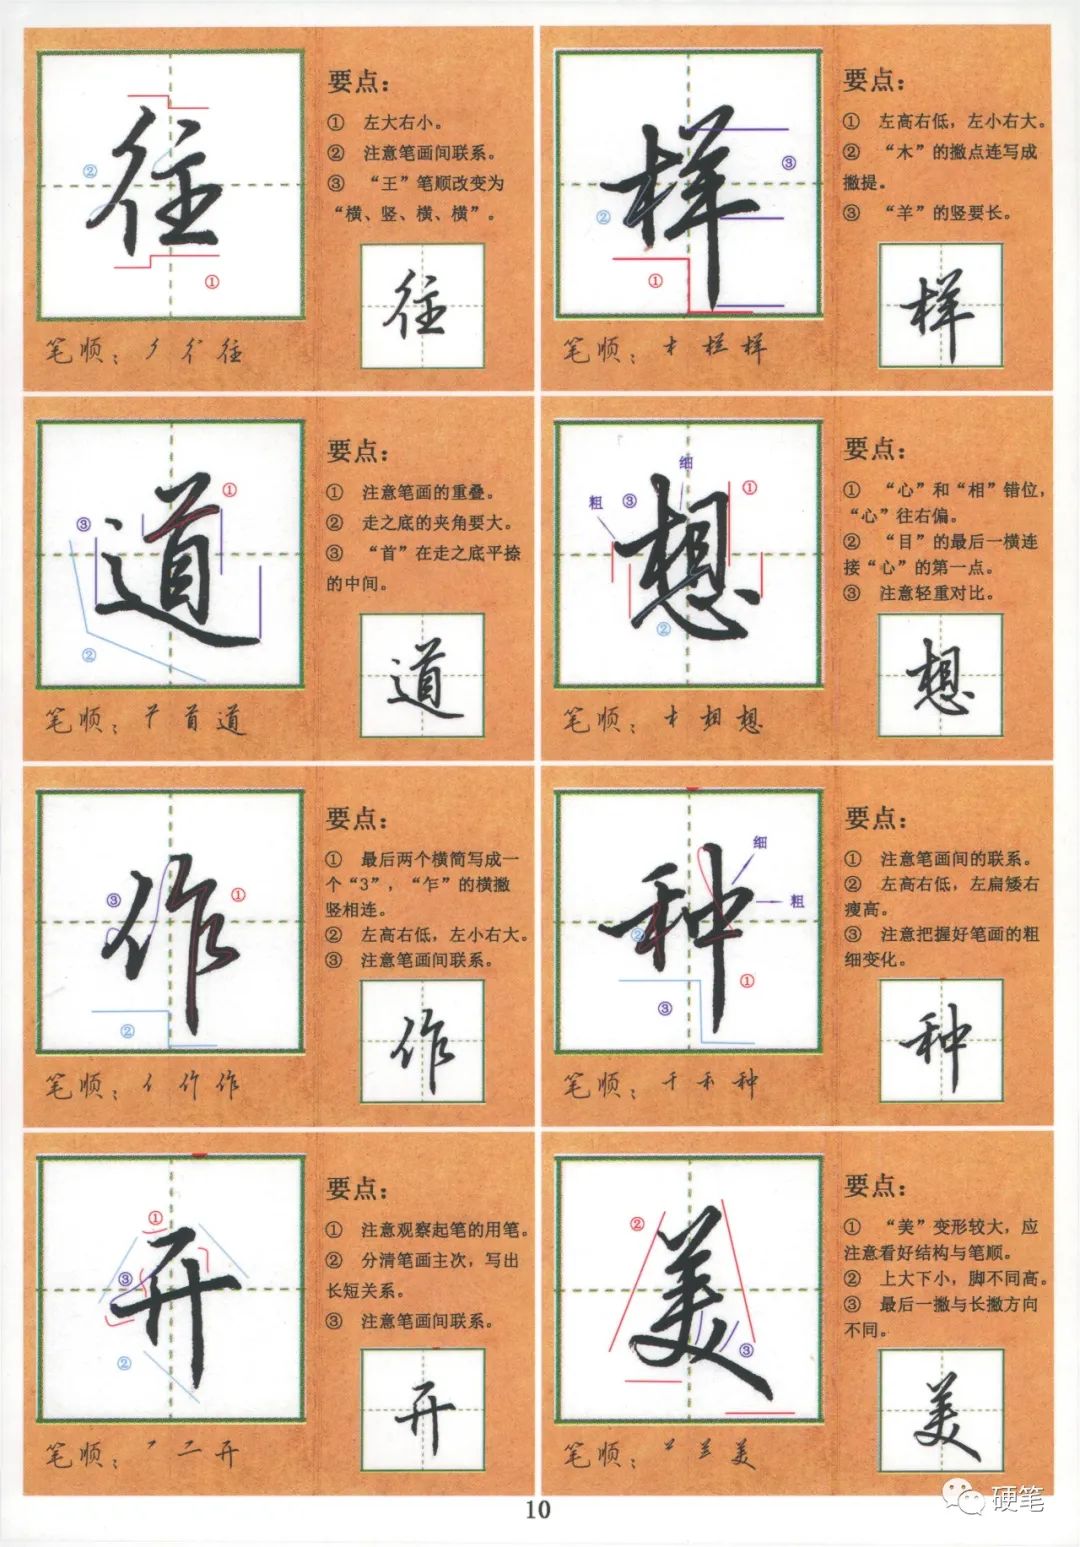 往
②
①
要点：
① 左大右小。
② 注意笔画间联系。
③ “王”笔顺改变为
“横、竖、横、横”。
往
笔顺：丿 彳 往
样
③
②
①
要点：
① 左高右低，左小右大。
② “木”的撇点连写成
撇提。
③ “羊”的竖要长。
样
笔顺：样
道
①
③
②
要点：
① 注意笔画的重叠。
② 走之底的夹角要大。
③ “首”在走之底平捺
的中间。
道
笔顺：首 道
想
细
粗 ③
①
②
要点：
① “心”和“相”错位，
“心”往右偏。
② “目”的最后一横连
接“心”的第一点。
③ 注意轻重对比。
想
笔顺：相 想
作
③
①
②
要点：
① 最后两个横简写成一
个“3”，“乍”的横撇
竖相连。
② 左高右低，左小右大。
③ 注意笔画间联系。
作
笔顺：亻 作 作
种
细
粗
②
①
③
要点：
① 注意笔画间的联系。
② 左高右低，左扁矮右
瘦高。
③ 注意把握好笔画的粗
细变化。
种
笔顺：千 禾 种
开
①
③
②
要点：
① 注意观察起笔的用笔。
② 分清笔画主次，写出
长短关系。
③ 注意笔画间联系。
开
笔顺：二 开
美
②
③
要点：
① “美”变形较大，应
注意看好结构与笔顺。
② 上大下小，脚不同高。
③ 最后一撇与长撇方向
不同。
美
笔顺：美
10
硬笔